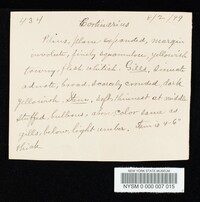 434
Cortinarius
9/2/19
Pileus, plano-expanded, margin
involute, finely squamulose, yellowish
tawny, flesh whitish. Gills, sinuate
adnate, broad, scarcely crowded, dark
yellowish. Stem, soft, thinnest at middle
stuffed, bulbous, color same as
gills, below light umber. Stem is 4-6
thick.
NEW YORK STATE MUSEUM
NYSM 0 000 007 015